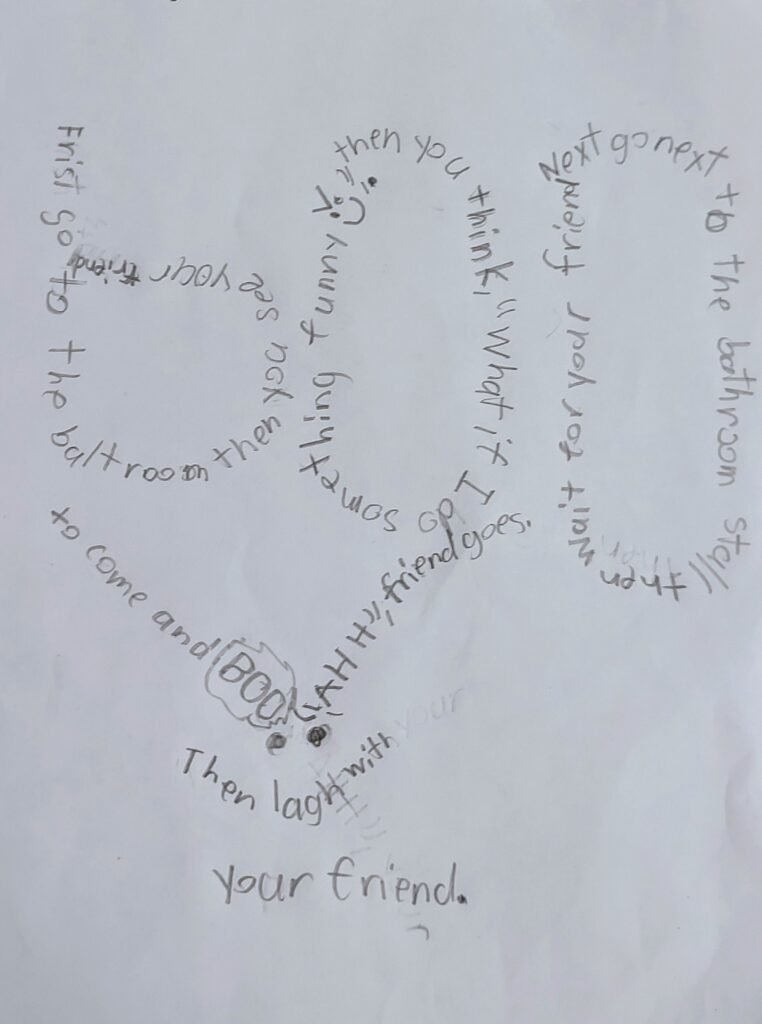 Frist go to the baltroom then you see your friend
then you think, "What if I do something funny
Next go next to the bathroom stall then wait for your friend
to come and BOO
"AHHH", friend goes.
Then laght with
your friend.